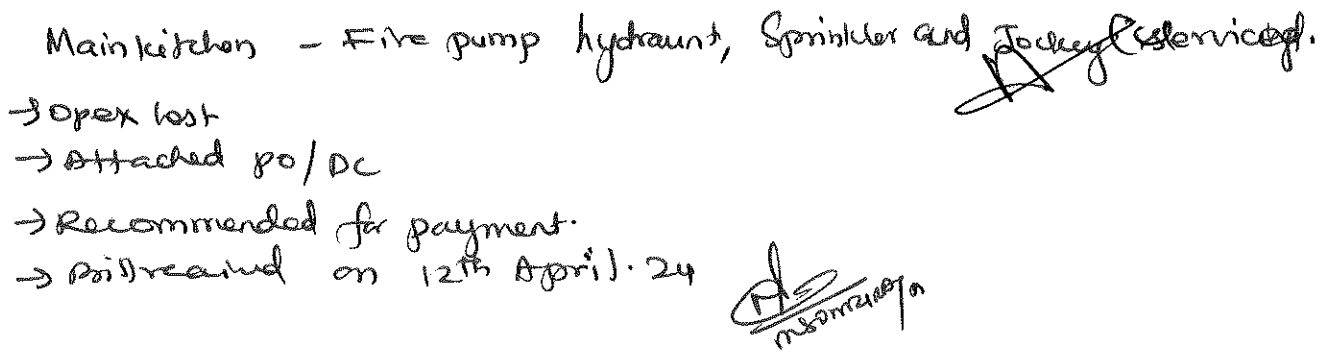 Main kitchen - Fire pump hydraunt, Sprinkler and Jockey serviced.
→ Opex cost
→ Attached PO/DC
→ Recommended for payment.
→ Bill received on 12th April. 24